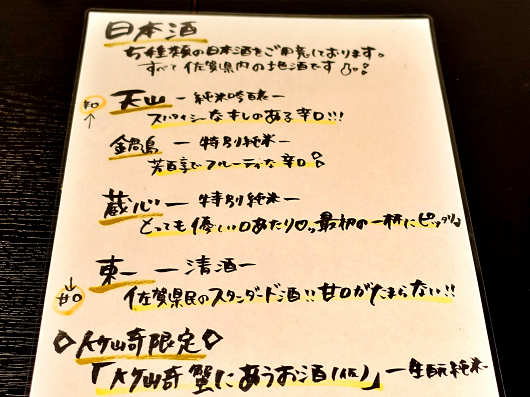 日本酒
5種類の日本酒をご用意しております。
すべて佐賀県内の地酒です
辛口
↑
天山 ー 純米吟醸ー
スパイシーなキレのある辛口!!!
鍋島 ー 特別純米ー
芳醇でフルーティな辛口
蔵心 ー 特別純米ー
とっても優しい口あたり♡。最初の一杯にピッタリ♪
東一 ー清酒ー
↓
甘口
佐賀県民のスタンダード酒!!甘口がたまらない!!
◇竹崎限定◇
「竹崎蟹にあうお酒(仮)」ー生酛純米ー